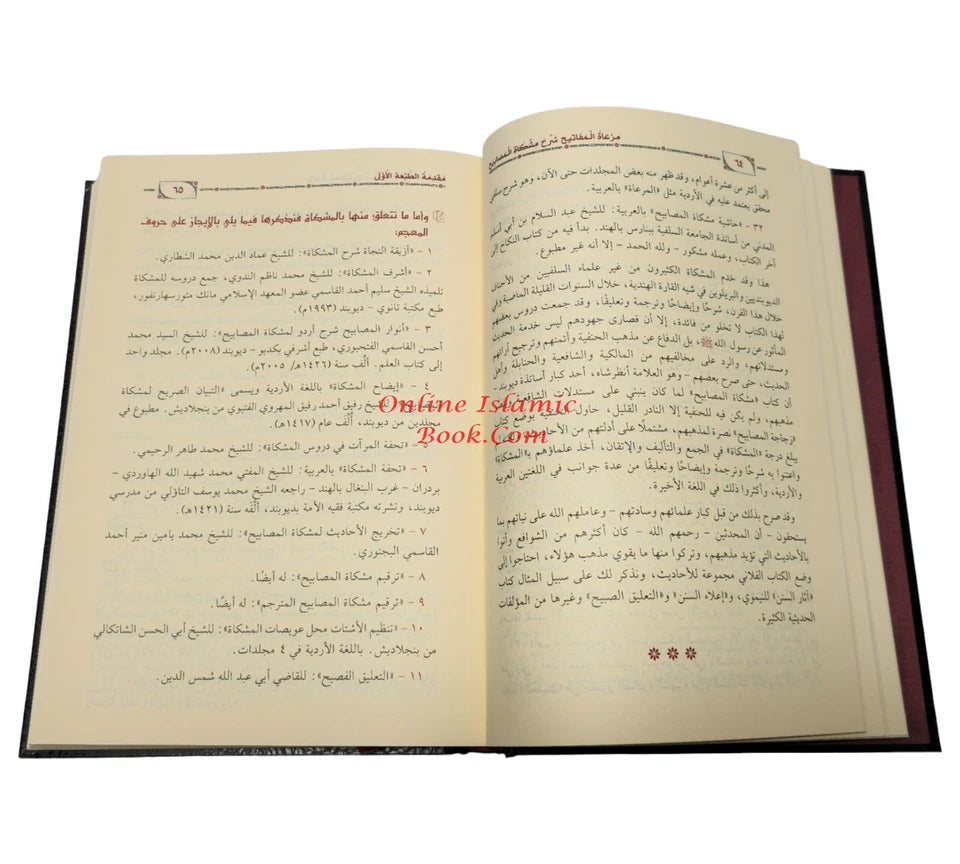 مرعاة المفاتيح شرح مشكاة المصابيح
٦٤
إلى أكثر من عشرة أعوام، وقد ظهر منه بعض المجلدات حتى الآن، وهو شرح سلفي
محقق يعتمد عليه في الأردية مثل «المرعاة» بالعربية.
٣٢ - «حاشية مشكاة المصابيح» بالعربية: للشيخ عبد السلام بن أبي أسلم
المدني من أساتذة الجامعة السلفية ببنارس بالهند. بدأ فيه من كتاب النكاح إلى
آخر الكتاب، وعمله مشكور - ولله الحمد - إلا أنه غير مطبوع.
هذا وقد خدم المشكاة الكثيرون من غير علماء السلفيين من الأحناف
الديوبنديين والبريلوين في شبه القارة الهندية، خلال السنوات القليلة الماضية وفي
خلال هذا القرن، شرحًا وإيضاحًا وترجمة وتعليقًا، وقد جمعت دروس بعضهم
لهذا الكتاب لا تخلو من فائدة، إلا أن قصارى جهودهم ليس خدمة الحديث
المأثور عن رسول الله ﷺ، بل الدفاع عن مذهب الحنفية وأئمتهم وترجيح آرائهم
ومستدلاتهم، والرد على مخالفيهم من المالكية والشافعية والحنابلة وأهل
الحديث، حتى صرح بعضهم - وهو العلامة أنظرشاه، أحد كبار أساتذة ديوبند -
أن كتاب «مشكاة المصابيح» لما كان ينبني على مستدلات الشافعية
مذهبهم، ولم يكن فيه للحنفية إلا النادر القليل، حاول الحنفية بوضع كتاب
«زجاجة المصابيح» نصرة لمذهبهم، مشتملًا على أدلتهم من الأحاديث
يبلغ درجة «المشكاة» في الجمع والتأليف والإتقان، أخذ علماؤهم بـ«المشكاة»
واعتنوا به شرحًا وترجمة وإيضاحًا وتعليقًا من عدة جوانب في اللغتين العربية
والأردية، وأكثروا ذلك في اللغة الأخيرة.
وقد صرح بذلك من قبل كبار علمائهم وسادتهم - وعاملهم الله على نياتهم بما
يستحقون - أن المحدثين - رحمهم الله - كان أكثرهم من الشوافع وأتوا
بالأحاديث التي تؤيد مذهبهم، وتركوا منها ما يقوي مذهب هؤلاء، احتاجوا إلى
وضع الكتاب الفلاني مجموعة للأحاديث، ونذكر لك على سبيل المثال كتاب
«آثار السنن» للنيموي، و«إعلاء السنن» و«التعليق الصبيح» وغيرها من المؤلفات
الحديثية الكثيرة.
مقدمة الطبعة الأولى
٦٥
وإما ما تتعلق منها بالمشكاة فنذكرها فيما يلي بالإيجاز على حروف
المعجم:
١ - «أزيقة النجاة شرح المشكاة»: للشيخ عماد الدين محمد الشطاري.
٢ - «أشرف المشكاة»: للشيخ محمد ناظم الندوي، جمع دروسه للمشكاة
تلميذه الشيخ سليم أحمد القاسمي عضو المعهد الإسلامي مانك متورسهارنفور،
طبع مكتبة ثانوي - ديوبند (١٩٩٣م).
٣ - «أنوار المصابيح شرح أردو لمشكاة المصابيح»: للشيخ السيد محمد
أحسن القاسمي الفتحبوري، طبع أشرفي بكديو - ديوبند (٢٠٠٨م). مجلد واحد
إلى كتاب العلم. ألَّف سنة (١٤٢٦هـ/ ٢٠٠٥م).
٤ - «إيضاح المشكاة» باللغة الأردية ويسمى «التبيان الصريح لمشكاة
المصابيح»: للشيخ رفيق أحمد رفيق المهروي الفتيوي من بنجلاديش. مطبوع في
مجلدين من ديوبند، ألَّف عام (١٤١٧هـ).
٥ - «تحفة المرآت في دروس المشكاة»: للشيخ محمد طاهر الرحيمي.
٦ - «تحفة المشكاة» بالعربية: للشيخ المفتي محمد شهيد الله الهاوردي -
بردران - غرب البنغال بالهند - راجعه الشيخ محمد يوسف التاؤلي من مدرسي
ديوبند، ونشرته مكتبة فقيه الأمة بديوبند، ألَّفه سنة (١٤٢١هـ).
٧ - «تخريج الأحاديث لمشكاة المصابيح»: للشيخ محمد يامين منير أحمد
القاسمي البجنوري.
٨ - «ترقيم مشكاة المصابيح»: له أيضًا.
٩ - «ترقيم مشكاة المصابيح المترجم»: له أيضًا.
١٠ - «تنظيم الأشتات محل عويصات المشكاة»: للشيخ أبي الحسن الشاتكالي
من بنجلاديش. باللغة الأردية في ٤ مجلدات.
١١ - «التعليق الفصيح»: للقاضي أبي عبد الله شمس الدين.
Online Islamic
Book.Com